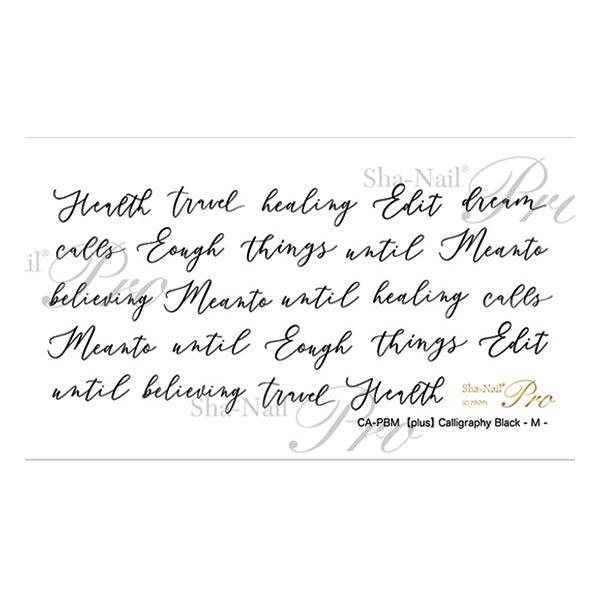 Sha-Nail® Pro
Health travel healing Edit dream
calls Eough things until Meanto
ail® Pro
believing Meanto until healing calls
Meanto until Eough things Edit
until believing travel Health
Sha-Nail® Pro
Sha-Nail® Pro
CA-PBM 【plus】Calligraphy Black - M -